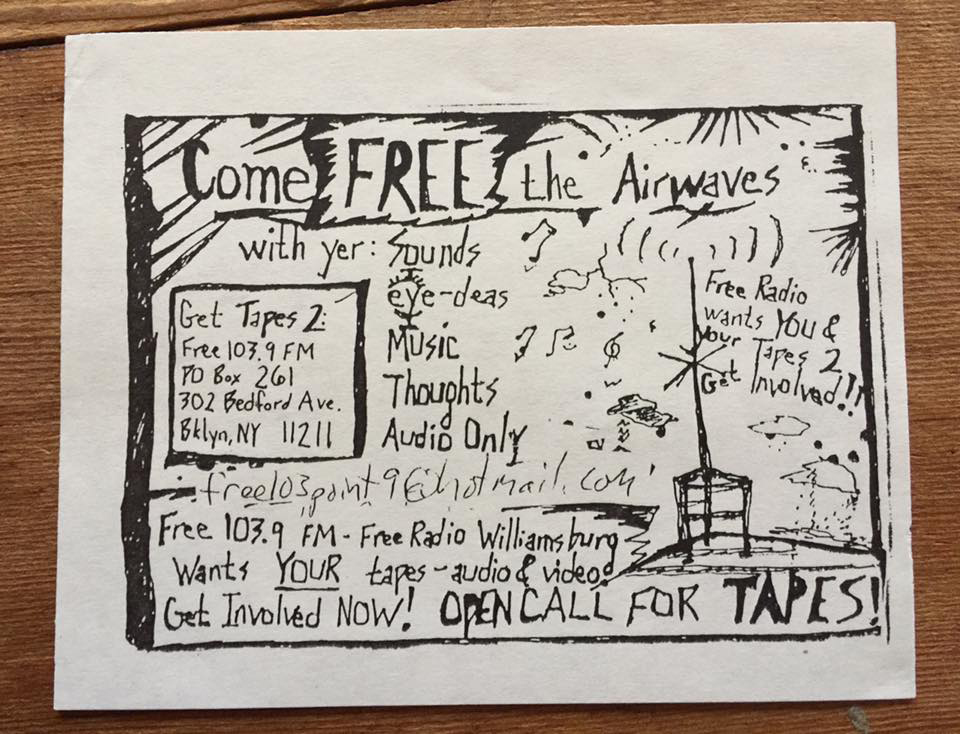 Come FREE the Airwaves
with yer: Sounds
eye-deas
Music
Thoughts
Audio Only
Get Tapes 2:
Free 103.9 FM
PO Box 261
302 Bedford Ave.
Bklyn, NY 11211
Free Radio
wants YOU &
Your Tapes 2
Get Involved!!
free103point9@hotmail.com
Free 103.9 FM - Free Radio Williamsburg
Wants YOUR tapes - audio & video!
Get Involved NOW! OPEN CALL FOR TAPES!